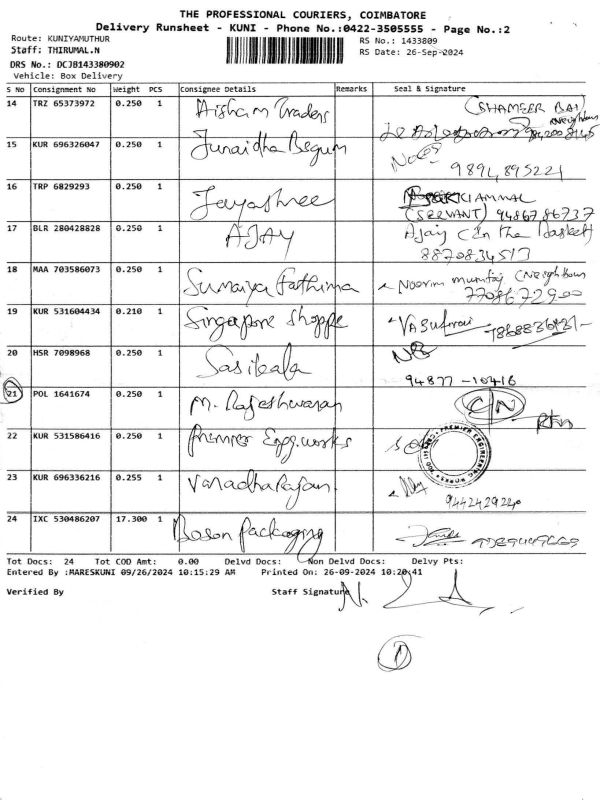 THE PROFESSIONAL COURIERS, COIMBATORE
Delivery Runsheet - KUNI - Phone No.:0422-3505555 - Page No.:2
Route: KUNIYAMUTHUR RS No.: 1433809
Staff: THIRUMAL.N RS Date: 26-Sep-2024
DRS No.: DCJB143380902
Vehicle: Box Delivery
S No Consignment No Weight PCS Consignee Details Remarks Seal & Signature
14 TRZ 65373972 0.250 1 Aisham Traders (SHAMEER BAI
Neighbour
15 KUR 696326047 0.250 1 Junaidha Begum
9894895221
16 TRP 6829293 0.250 1 Jayashree
(SERVANT) 9486786737
17 BLR 280428828 0.250 1 AJAY Ajay (In the Basket)
8870834517
18 MAA 703586073 0.250 1 Sumaiya Fathima Noorin mumtaj (Neighbour
7708672900
19 KUR 531604434 0.210 1 Singapore Shoppe
20 HSR 7098968 0.250 1 Sasikala
94877-10416
21 POL 1641674 0.250 1 M. Rajeshwaran CN
Rtn
22 KUR 531586416 0.250 1 Premier Engg. works
PREMIER ENGINEERING WORKS
23 KUR 696336216 0.255 1 Varadharajan
9442429220
24 IXC 530486207 17.300 1 Bason Packaging
Tot Docs: 24 Tot COD Amt: 0.00 Delvd Docs: Non Delvd Docs: Delvy Pts:
Entered By :MARESKUNI 09/26/2024 10:15:29 AM Printed On: 26-09-2024 10:20:41
Verified By Staff Signature
1